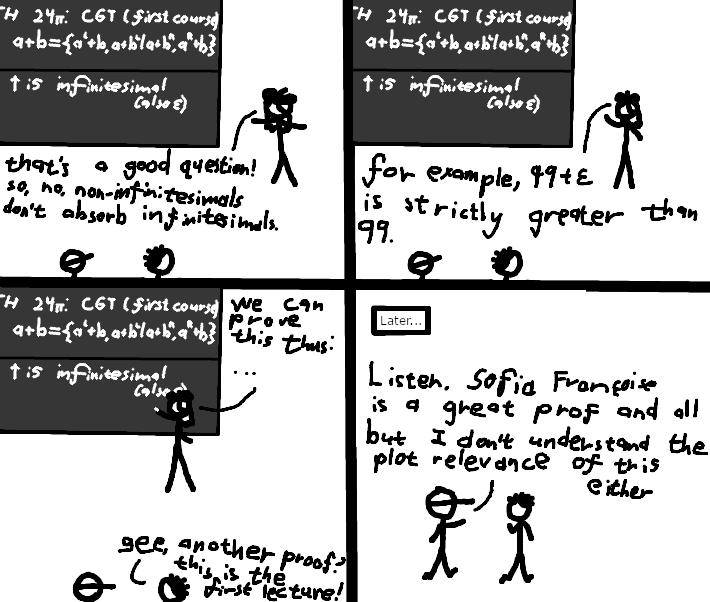 TH 24π: CGT (first course)
a+b={aᴸ+b,a+bᴸ|a+bᴿ,aᴿ+b}
↑ is infinitesimal
(also ε)
that's a good question!
so, no, non-infinitesimals
don't absorb infinitesimals.
TH 24π: CGT (first course)
a+b={aᴸ+b,a+bᴸ|a+bᴿ,aᴿ+b}
↑ is infinitesimal
(also ε)
for example, 99+ε
is strictly greater than
99.
TH 24π: CGT (first course)
a+b={aᴸ+b,a+bᴸ|a+bᴿ,aᴿ+b}
↑ is infinitesimal
we can
prove
this thus:
...
gee, another proof?
this is the
first lecture!
Later...
Listen. Sofia Françoise
is a great prof and all
but I don't understand the
plot relevance of this
either